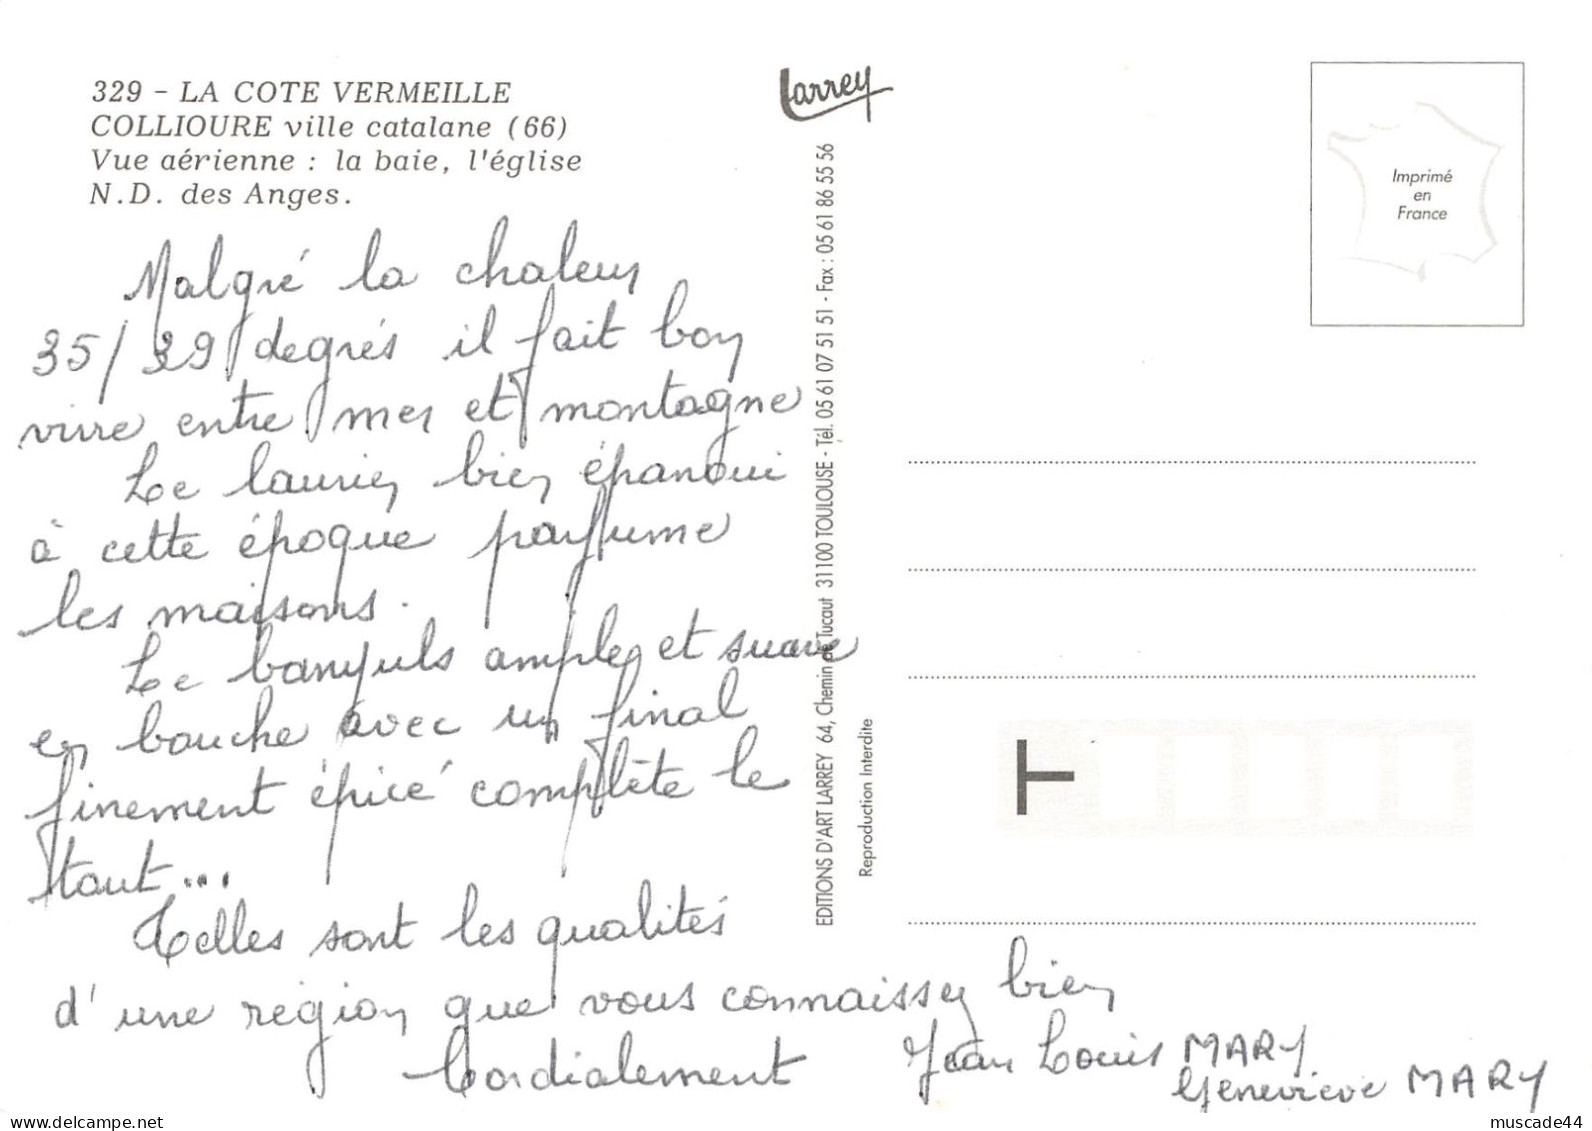 329 - LA COTE VERMEILLE
COLLIOURE ville catalane (66)
Vue aérienne : la baie, l'église
N.D. des Anges.
Malgré la chaleur
35/39 degrés il fait bon
vivre entre mer et montagne
Le laurier bien épanoui
à cette époque parfume
les maisons.
Le banyuls ample et suave
en bouche avec un final
finement épicé complète le
tout...
Telles sont les qualités
d'une région que vous connaissez bien
Cordialement
Jean Louis MARY
Geneviève MARY
Larrey
EDITIONS D'ART LARREY 64, Chemin de Tucaut 31100 TOULOUSE - Tél. 05 61 07 51 51 - Fax : 05 61 86 55 56
Reproduction Interdite
Imprimé
en
France
T
muscade44